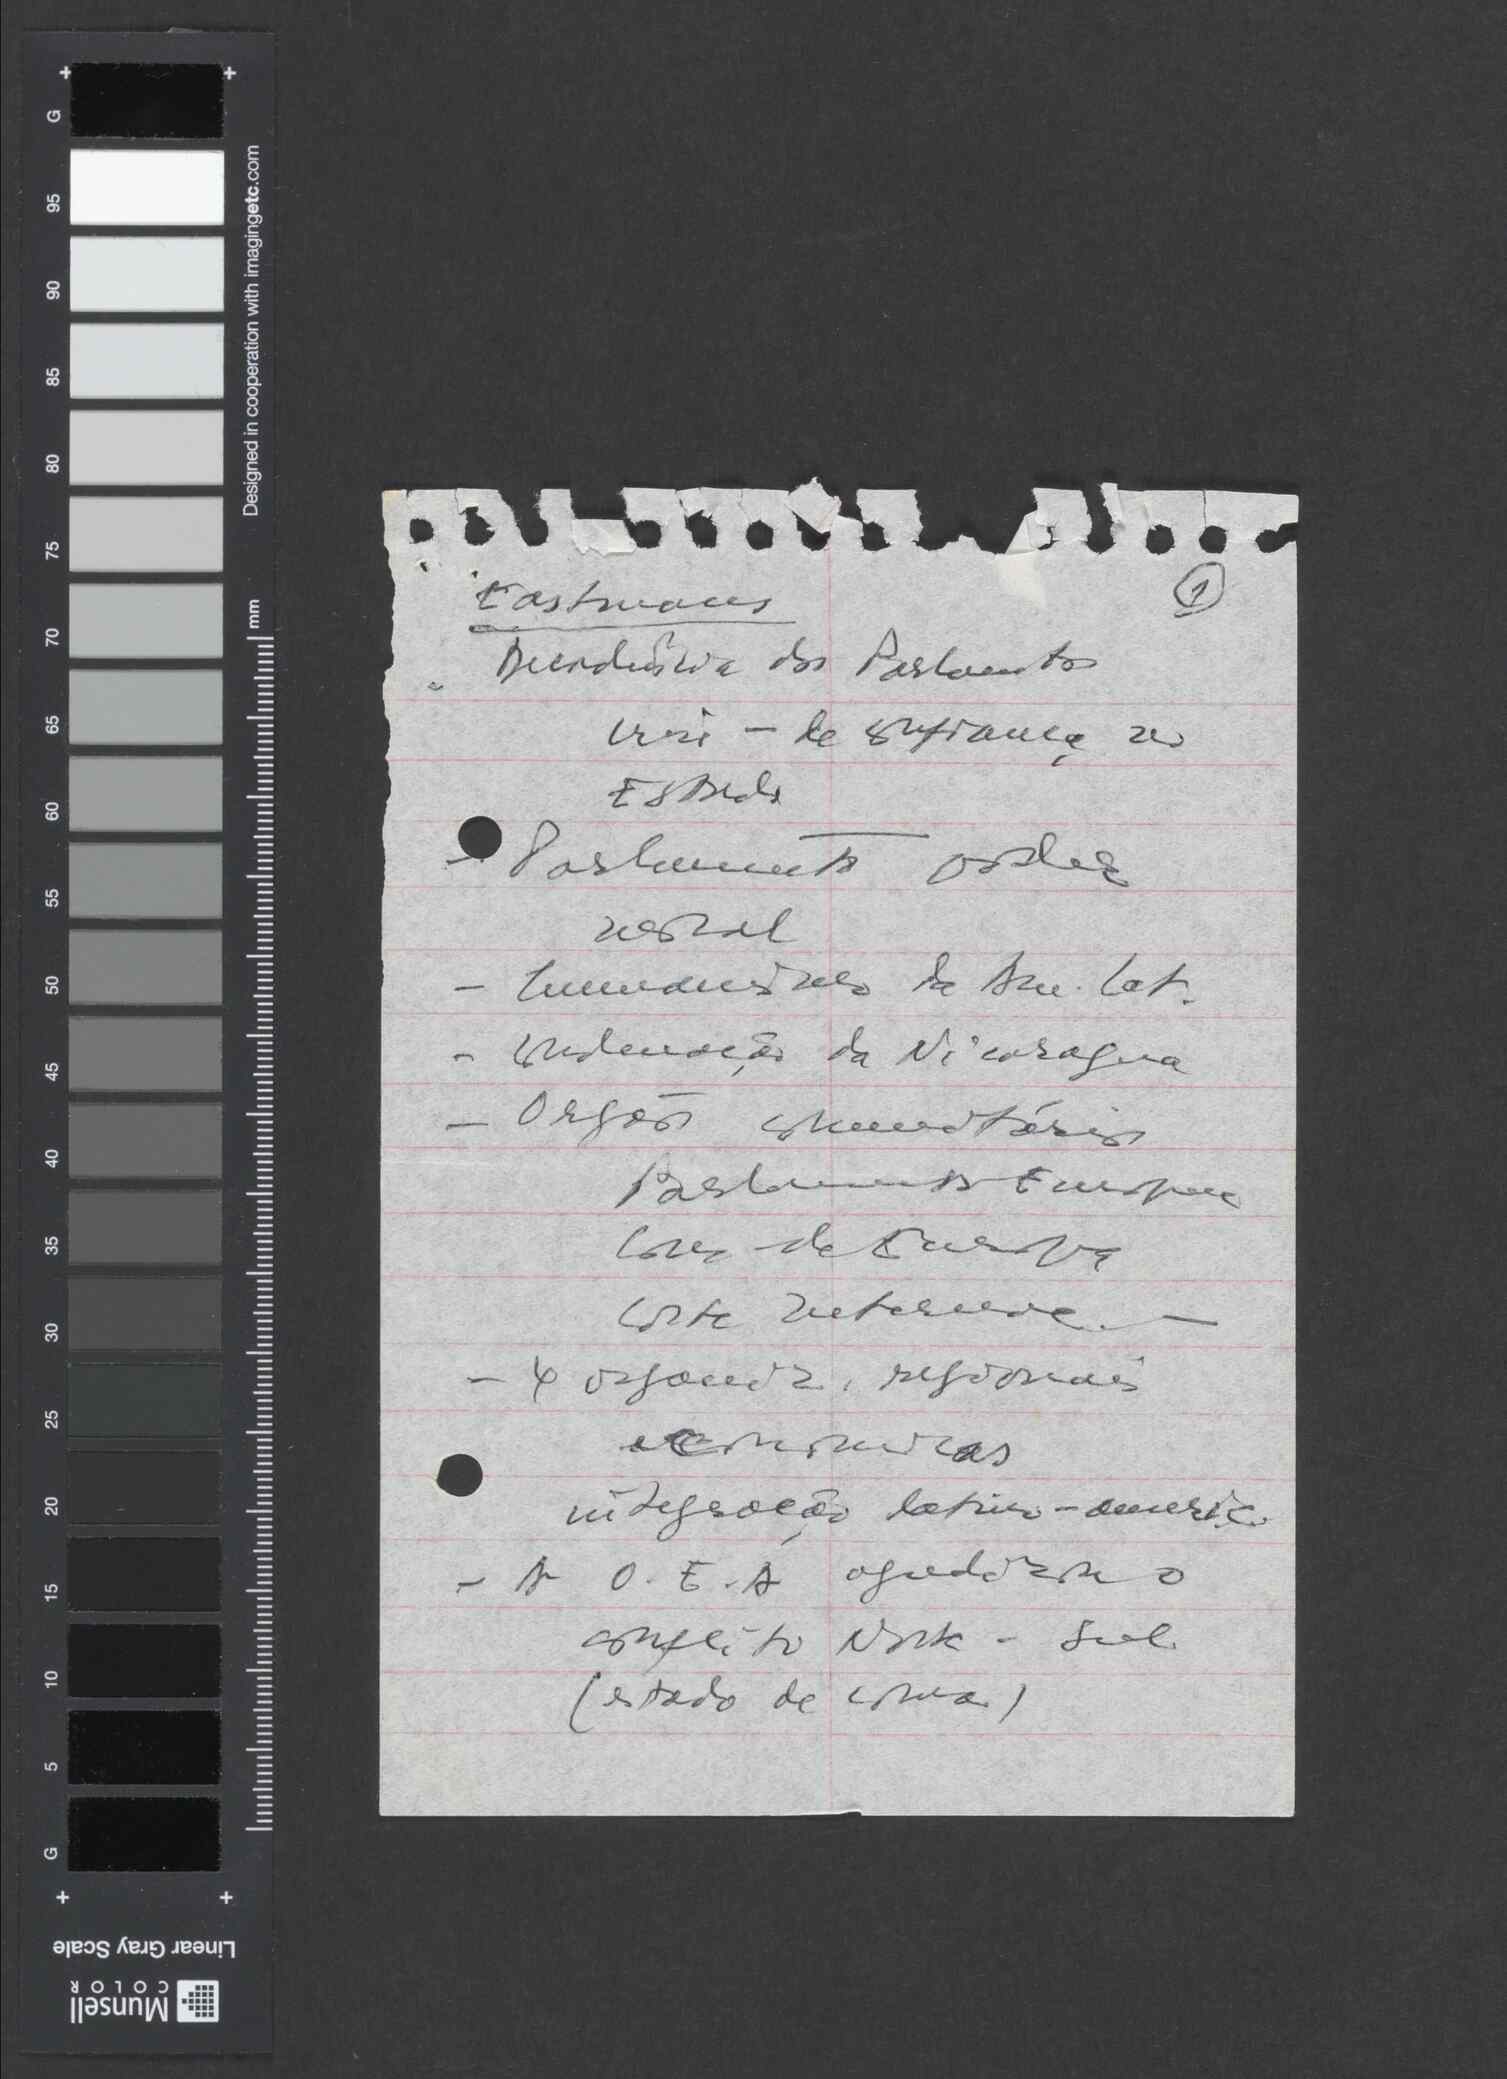 Eastmans
1
Decadência dos Parlamentos
crise - de confiança no
Estado
- Parlamento
- da Am. Lat.
- condenação da Nicaragua
- Orgãos comunitários
Parlamento Europeu
Cons. de Europa
Corte
- 4 organiz. regionais
economicas
integração latino-americ.
- A O.E.A agudizou o
conflito Norte - Sul
(estado de coma)
G
95
90
85
80
75
70
65
60
55
50
45
40
35
30
25
20
15
10
5
G
Designed in cooperation with imagingetc.com
mm
Linear Gray Scale
Munsell
COLOR